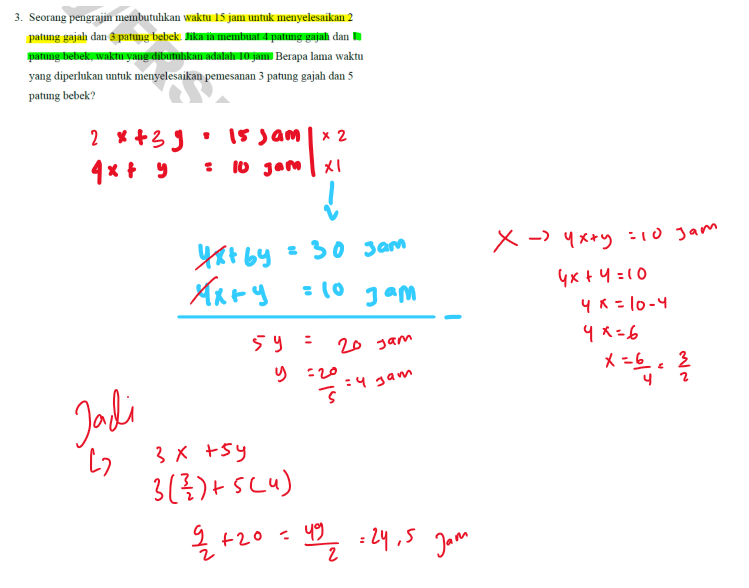 3. Seorang pengrajin membutuhkan waktu 15 jam untuk menyelesaikan 2
patung gajah dan 3 patung bebek. Jika ia membuat 4 patung gajah dan 1
patung bebek, waktu yang dibutuhkan adalah 10 jam. Berapa lama waktu
yang diperlukan untuk menyelesaikan pemesanan 3 patung gajah dan 5
patung bebek?
2x+3y = 15 jam | x 2
4x+ y = 10 jam | x1
4x+6y = 30 jam
4x+y = 10 jam −
5y = 20 jam
y = 20/5 = 4 jam
X → 4x+y = 10 jam
4x+4=10
4x=10-4
4x=6
x = 6/4 = 3/2
Jadi
↳ 3x +5y
3(3/2)+5(4)
9/2 +20 = 49/2 = 24,5 jam